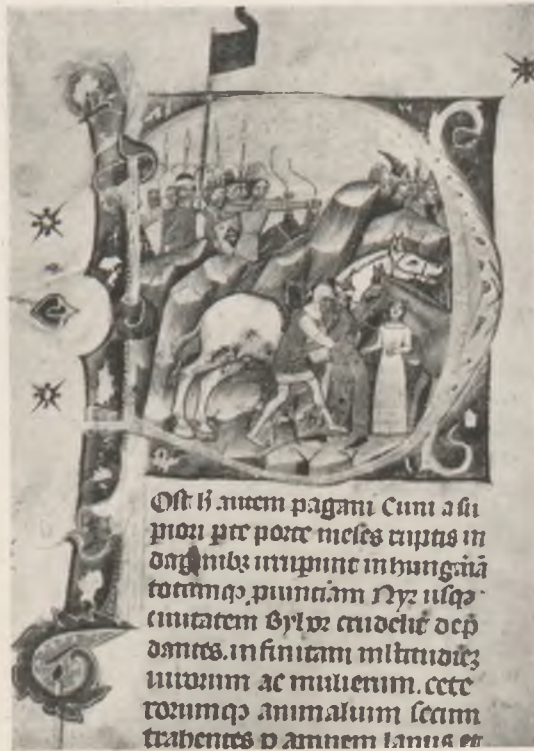 Post h̄ autem pagani Cuni a su
piori pte porte meses ruptis in
daginibꝫ irrupunt in hungariā
totamqꝫ puintiam Nyr usqꝫ
ciuitatem Byhor crudelit̄ dep
dantes. infinitam mltitudieꝫ
uirorum ac mulierum. cete
rorumqꝫ animalium secum
trahentes p amnem lapus et